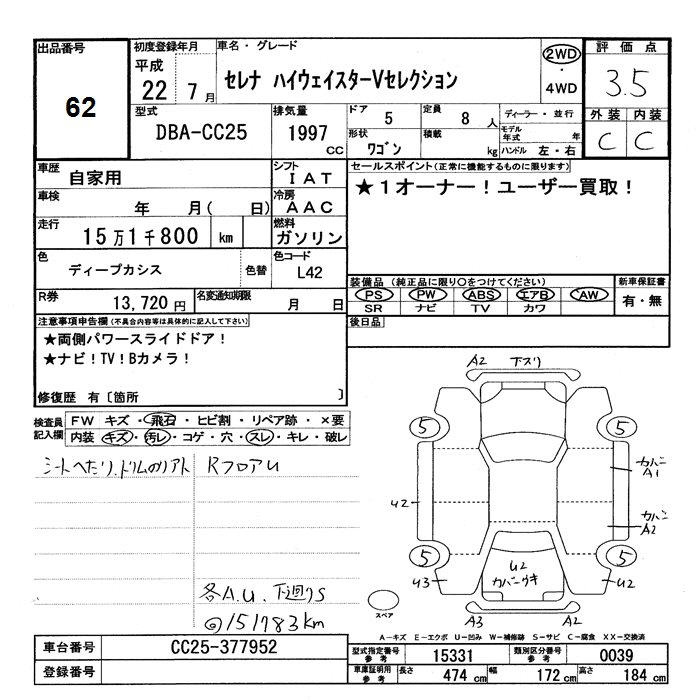 出品番号
62
初度登録年月
平成
22 7月
車名・グレード
セレナ ハイウェイスターVセレクション
2WD
・
4WD
評価点
3.5
外装 内装
C C
型式
DBA-CC25
排気量
1997
CC
ドア
5
定員
8 人
形状
ワゴン
積載
kg
ディーラー・並行
モデル年式 年
ハンドル 左・右
車歴
自家用
シフト
IAT
車検
年 月( 日)
冷房
AAC
走行
15万1千800 km
燃料
ガソリン
色
ディープカシス
色替
色コード
L42
R券
13,720円
名変通知期限
月 日
セールスポイント(正常に機能するものに限ります)
★1オーナー!ユーザー買取!
装備品 (純正品に限り○をつけてください)
PS PW ABS エアB AW
SR ナビ TV カワ
新車保証書
有・無
後日品
注意事項申告欄(不具合内容等は具体的に記入して下さい)
★両側パワースライドドア!
★ナビ!TV!Bカメラ!
修復歴 有〔箇所 〕
検査員記入欄
FW キズ・飛石・ヒビ割・リペア跡・×要
内装 キズ・汚レ・コゲ・穴・スレ・キレ・破レ
シートへたり、ドリムのリアト
RフロアU
各A.U. 下廻りS
◎151783km
A2 下スリ
5 5
カバーA1
U2
カバーA2
5 5
U3
U2
カバーウキ
U2
スペア
A3 A2
A-キズ E-エクボ U-凹み W-補修跡 S-サビ C-腐食 XX-交換済
車台番号
CC25-377952
登録番号
型式指定番号
参考
15331
類別区分番号
参考
0039
車庫証明用
参考
長さ
474 cm
幅
172 cm
高さ
184 cm